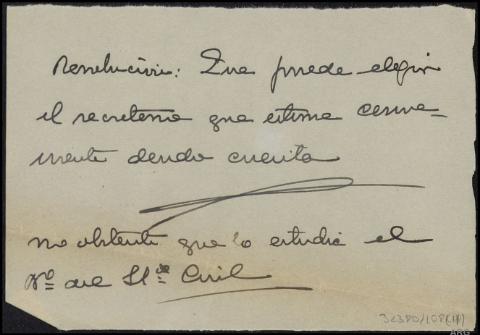 Resolución: Que puede elegir
el secretario que estime conve-
niente dando cuenta
no obstante que lo estudie el
Nº de Hª Civil
32380/108(14)
ARG